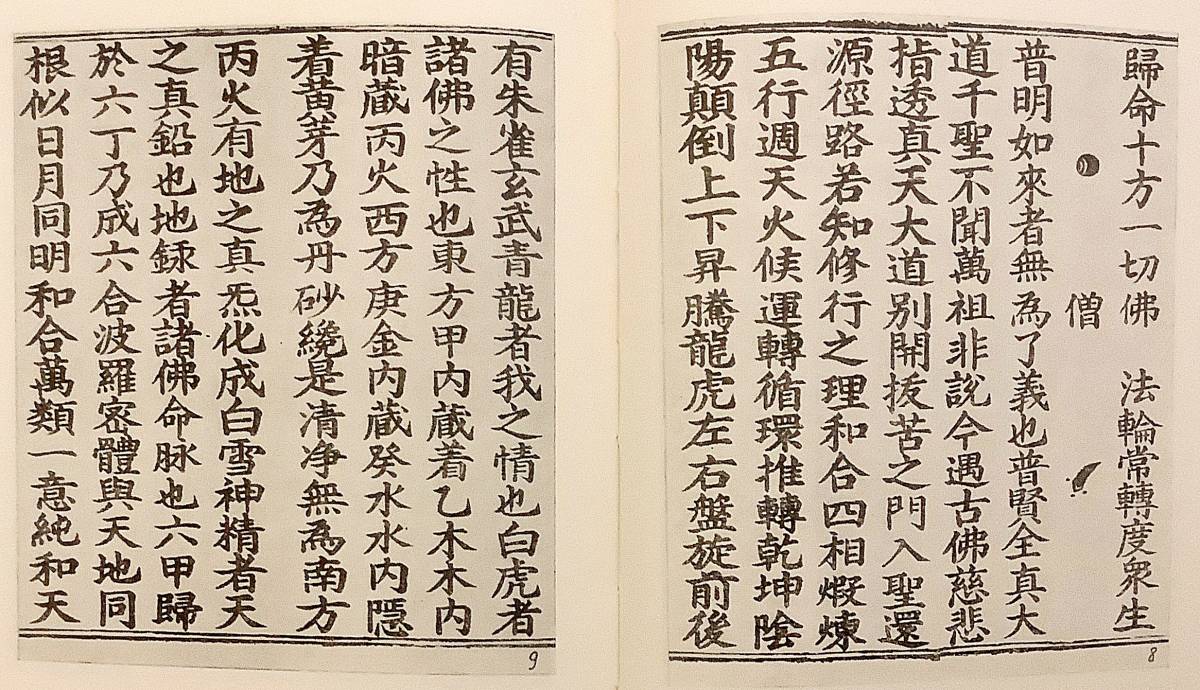 歸命十方一切佛 法輪常轉度衆生
僧
普明如來者無為了義也普賢全真大
道千聖不聞萬祖非說今遇古佛慈悲
指透真天大道別開拔苦之門入聖還
源徑路若知修行之理和合四相煆煉
五行週天火候運轉循環推轉乾坤陰
陽顛倒上下昇騰龍虎左右盤旋前後
8
有朱雀玄武青龍者我之情也白虎者
諸佛之性也東方甲内藏着乙木木内
暗藏丙火西方庚金内藏癸水水内隱
着黃芽乃為丹砂纔是清净無為南方
丙火有地之真炁化成白雪神精者天
之真鉛也地者諸佛命脉也六甲歸
於六丁乃成六合波羅密體與天地同
根似日月同明和合萬類一意純和天
9